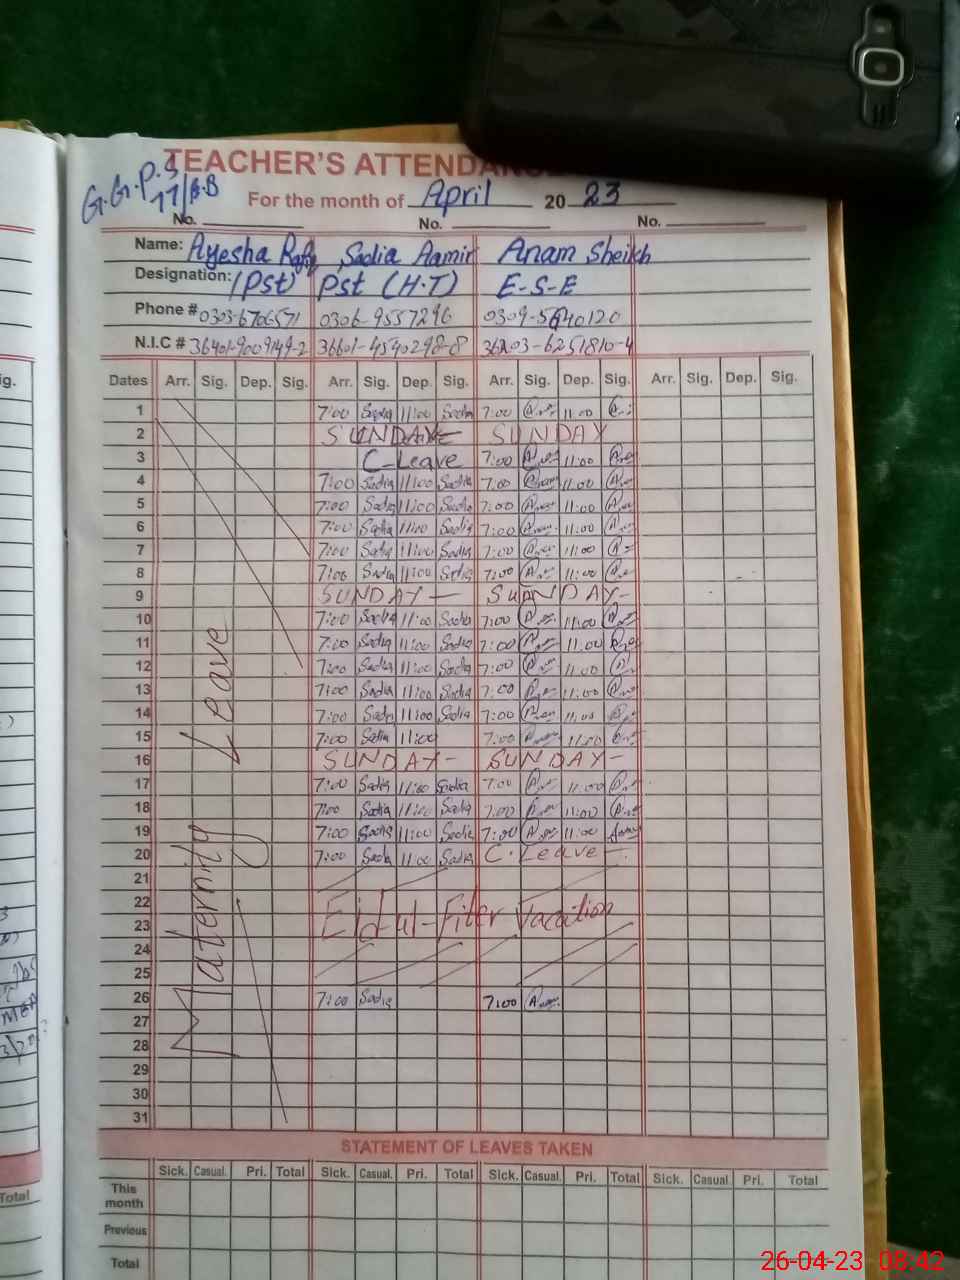 TEACHER'S ATTENDAN
G.G.P.S
For the month of April 20 23
No. No. No.
Name: Ayesha Rafiq Sadia Aamir Anam Sheikh
Designation: (Pst) Pst (H.T) E-S-E
Phone # 0303-6706571 0306-9557296 0309-5640120
N.I.C # 36401-9009149-2 36601-4540298-8 36203-6251810-4
Dates Arr. Sig. Dep. Sig. Arr. Sig. Dep. Sig. Arr. Sig. Dep. Sig. Arr. Sig. Dep. Sig.
1 7:00 Sadia 11:00 Sadia 7:00 11:00
2 SUNDAY SUNDAY
3 C-Leave 7:00 11:00
4 7:00 Sadia 11:00 Sadia 7:00 11:00
5 7:00 Sadia 11:00 Sadia 7:00 11:00
6 7:00 Sadia 11:00 Sadia 7:00 11:00
7 7:00 Sadia 11:00 Sadia 7:00 11:00
8 7:00 Sadia 11:00 Sadia 7:00 11:00
9 SUNDAY - SUNDAY -
10 7:00 Sadia 11:00 Sadia 7:00 11:00
11 7:00 Sadia 11:00 Sadia 7:00 11:00
12 7:00 Sadia 11:00 Sadia 7:00 11:00
13 7:00 Sadia 11:00 Sadia 7:00 11:00
14 7:00 Sadia 11:00 Sadia 7:00 11:00
15 7:00 Sadia 11:00 7:00 11:00
16 SUNDAY - SUNDAY -
17 7:00 Sadia 11:00 Sadia 7:00 11:00
18 7:00 Sadia 11:00 Sadia 7:00 11:00
19 7:00 Sadia 11:00 Sadia 7:00 11:00
20 7:00 Sadia 11:00 Sadia C. Leave
21
22 Eid-ul-Fiter Vacation
23
24
25
26 7:00 Sadia 7:00
27
28
29
30
31
Maternity Leave
STATEMENT OF LEAVES TAKEN
Sick. Casual. Pri. Total Sick. Casual. Pri. Total Sick. Casual. Pri. Total Sick. Casual. Pri. Total
This month
Previous
Total
ig.
Total
26-04-23 08:42